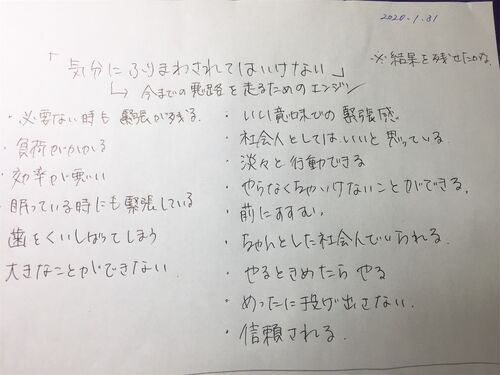 2020.1.31
「気分にふりまわされてはいけない」
※結果を残せたかな
↳ 今までの悪路を走るためのエンジン
・必要ない時も緊張が残る。
負荷がかかる
効率が悪い
眠っている時にも緊張している
歯をくいしばってしまう
大きなことができない
・いい意味での緊張感。
・社会人としてはいいと思っている。
・淡々と行動できる
・やらなくちゃいけないことができる。
・前にすすむ。
・ちゃんとした社会人でいられる。
・やるときめたらやる
・めったに投げ出さない。
・信頼される。